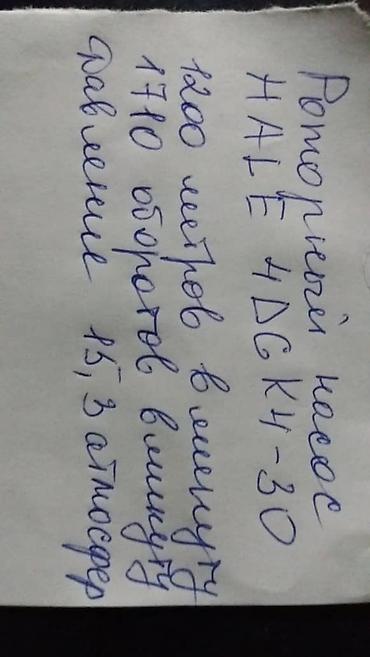 Роторный насос
HALE 4DG K4-30
1200 метров в менуту
1710 оборотов в минуту
Давление 15,3 атмосфер